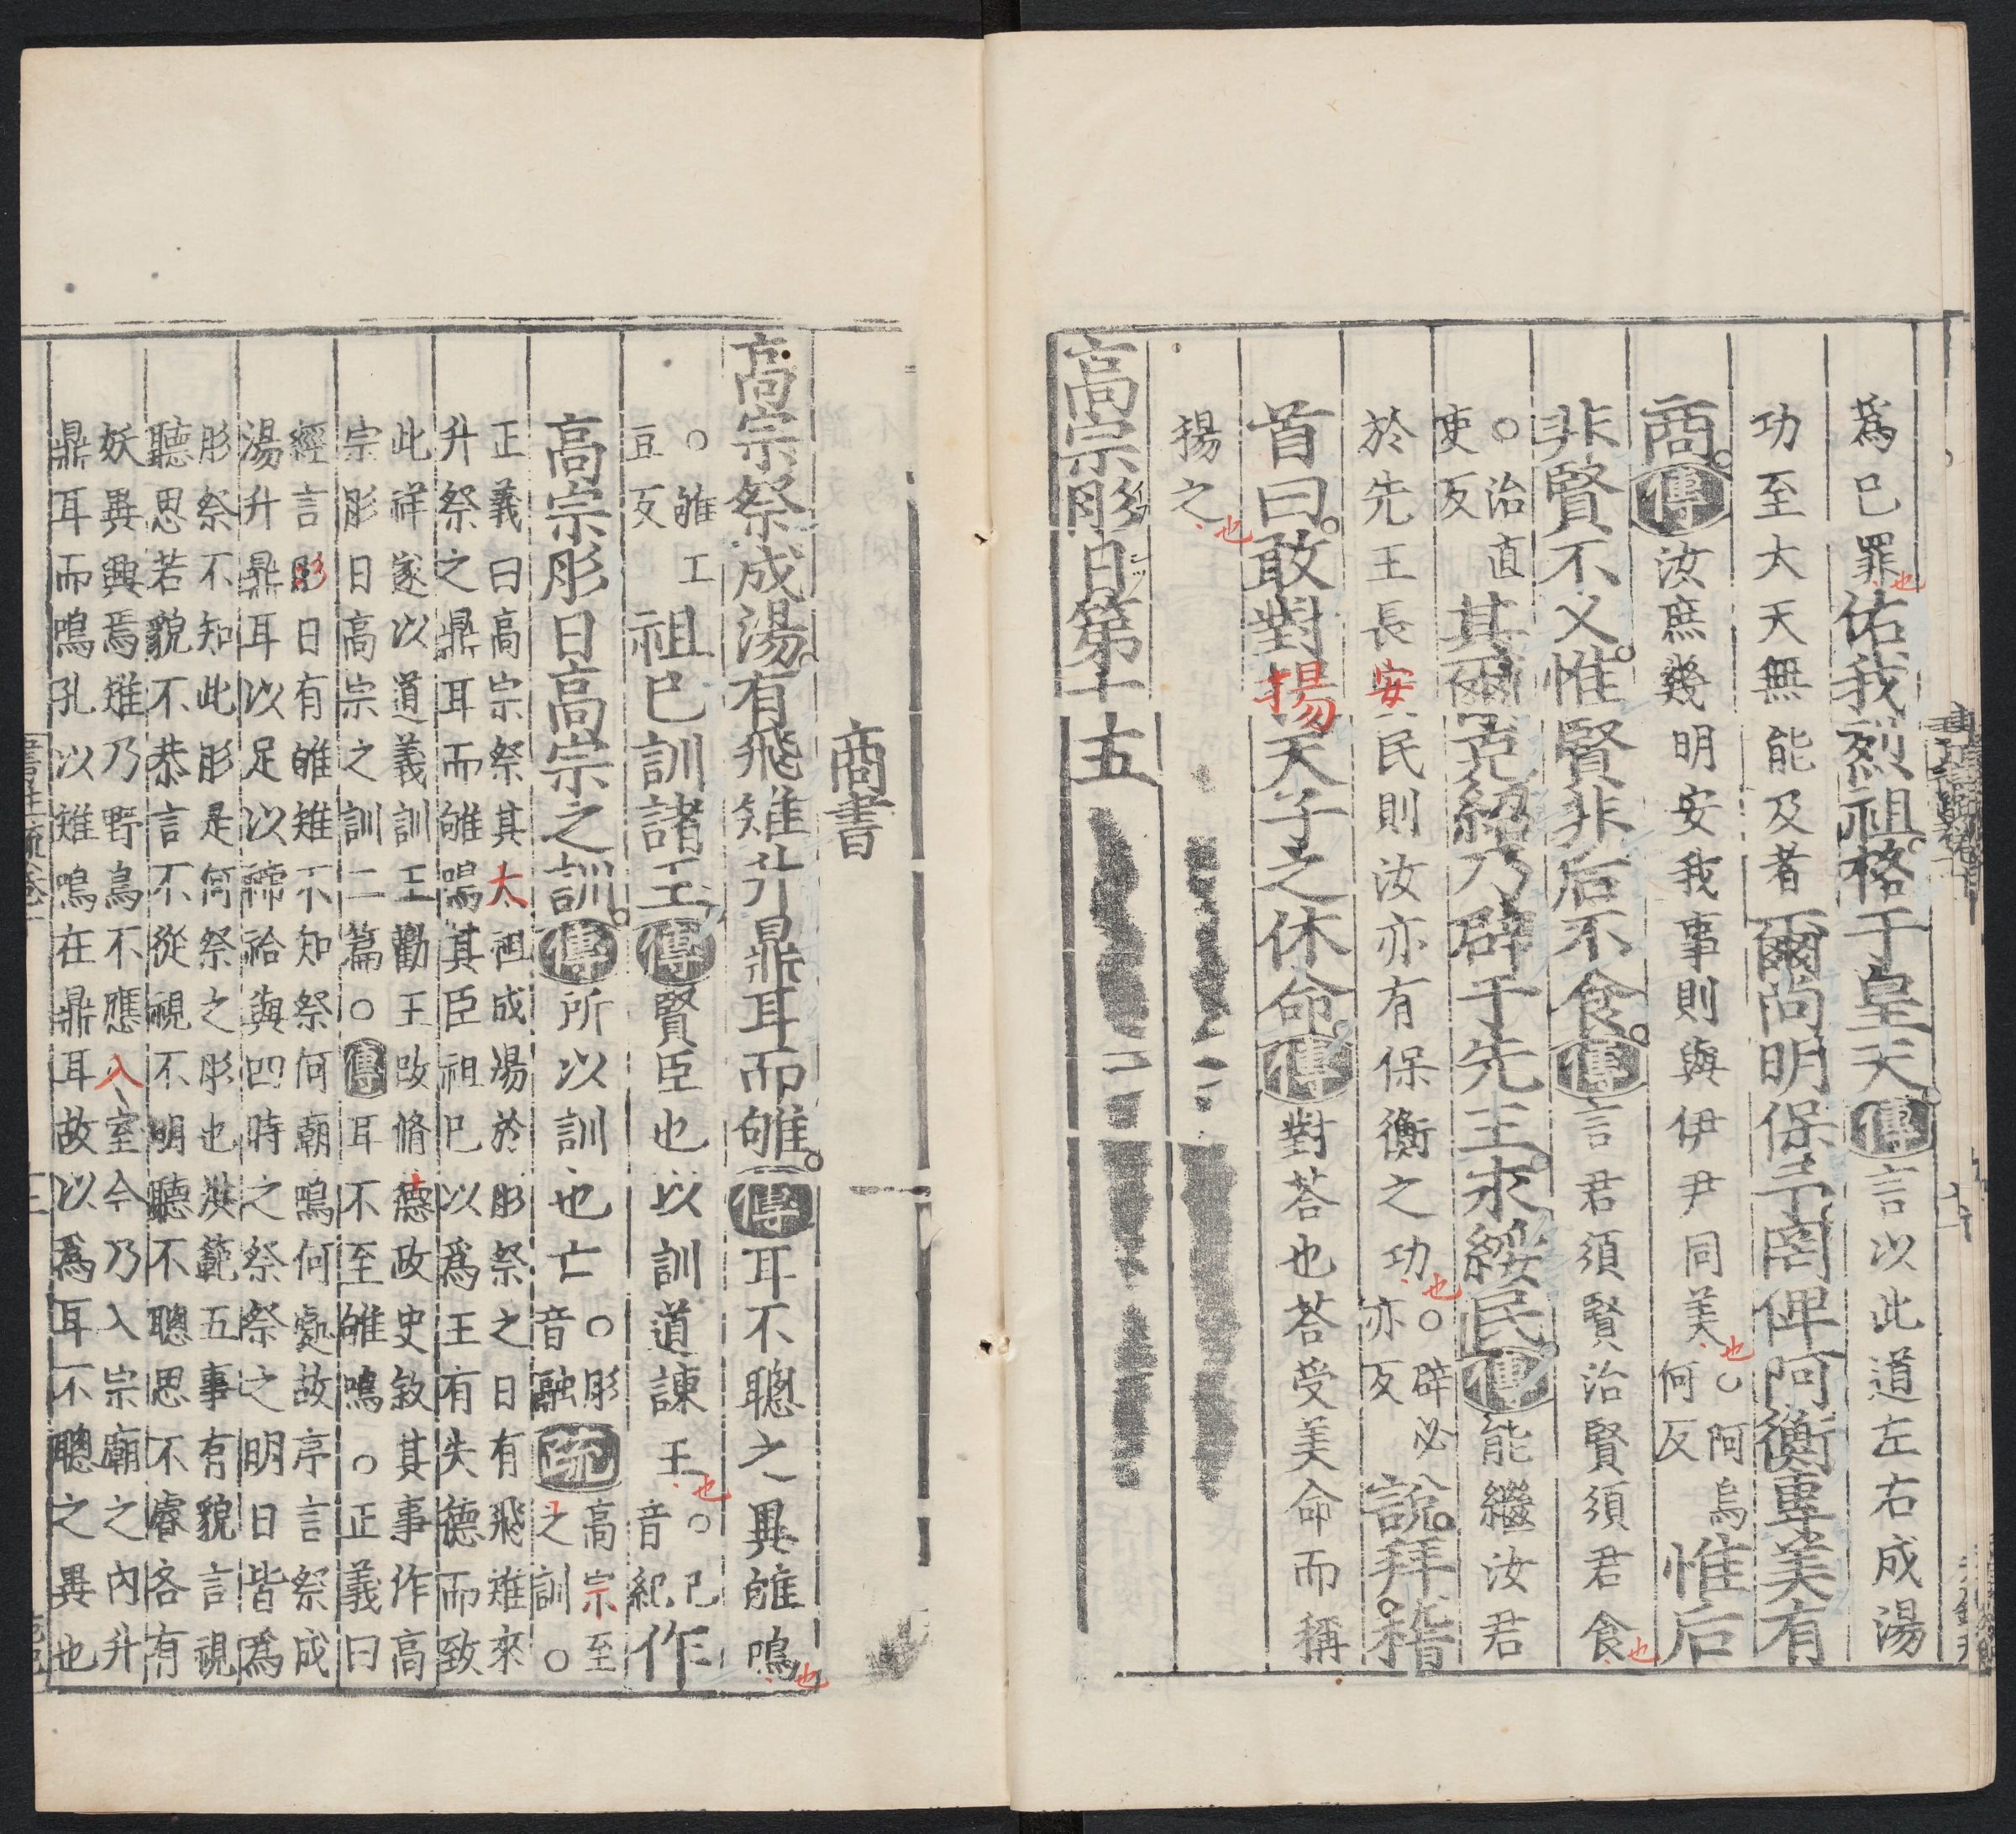 爲己罪也佑我烈祖格于皇天傳言以此道左右成湯
功至大天無能及者爾尚明保予罔俾阿衡專美有
商傳汝庶幾明安我事則與伊尹同美也○阿烏何反惟后
非賢不乂惟賢非后不食傳言君須賢治賢須君食也
○治直吏反其爾克紹乃辟于先王永綏民傳能繼汝君
於先王長安民則汝亦有保衡之功也○辟必亦反說拜稽
首曰敢對揚天子之休命傳對荅也荅受美命而稱
揚之也
高宗肜日第十五
商書
高宗祭成湯有飛雉升鼎耳而雊傳耳不聰之異雊鳴也
○雊工豆反祖己訓諸王傳賢臣也以訓道諫王也○己音紀作
高宗肜日高宗之訓傳所以訓也亡○肜音融疏高宗至之訓○
正義曰高宗祭其太祖成湯於肜祭之日有飛雉來
升祭之鼎耳而雊鳴其臣祖己以爲王有失德而致
此祥遂以道義訓王勸王改脩德政史敘其事作高
宗肜日高宗之訓二篇○傳耳不至雊鳴○正義曰
經言肜日有雊雉不知祭何廟鳴何處故序言祭成
湯升鼎耳以足以禘祫與四時之祭祭之明日皆爲
肜祭不知此肜是何祭之肜也洪範五事有貌言視
聽思若貌不恭言不從視不明聽不聰思不睿各有
妖異興焉雉乃野鳥不應入室今乃入宗廟之內升
鼎耳而鳴孔以雉鳴在鼎耳故以爲耳不聰之異也